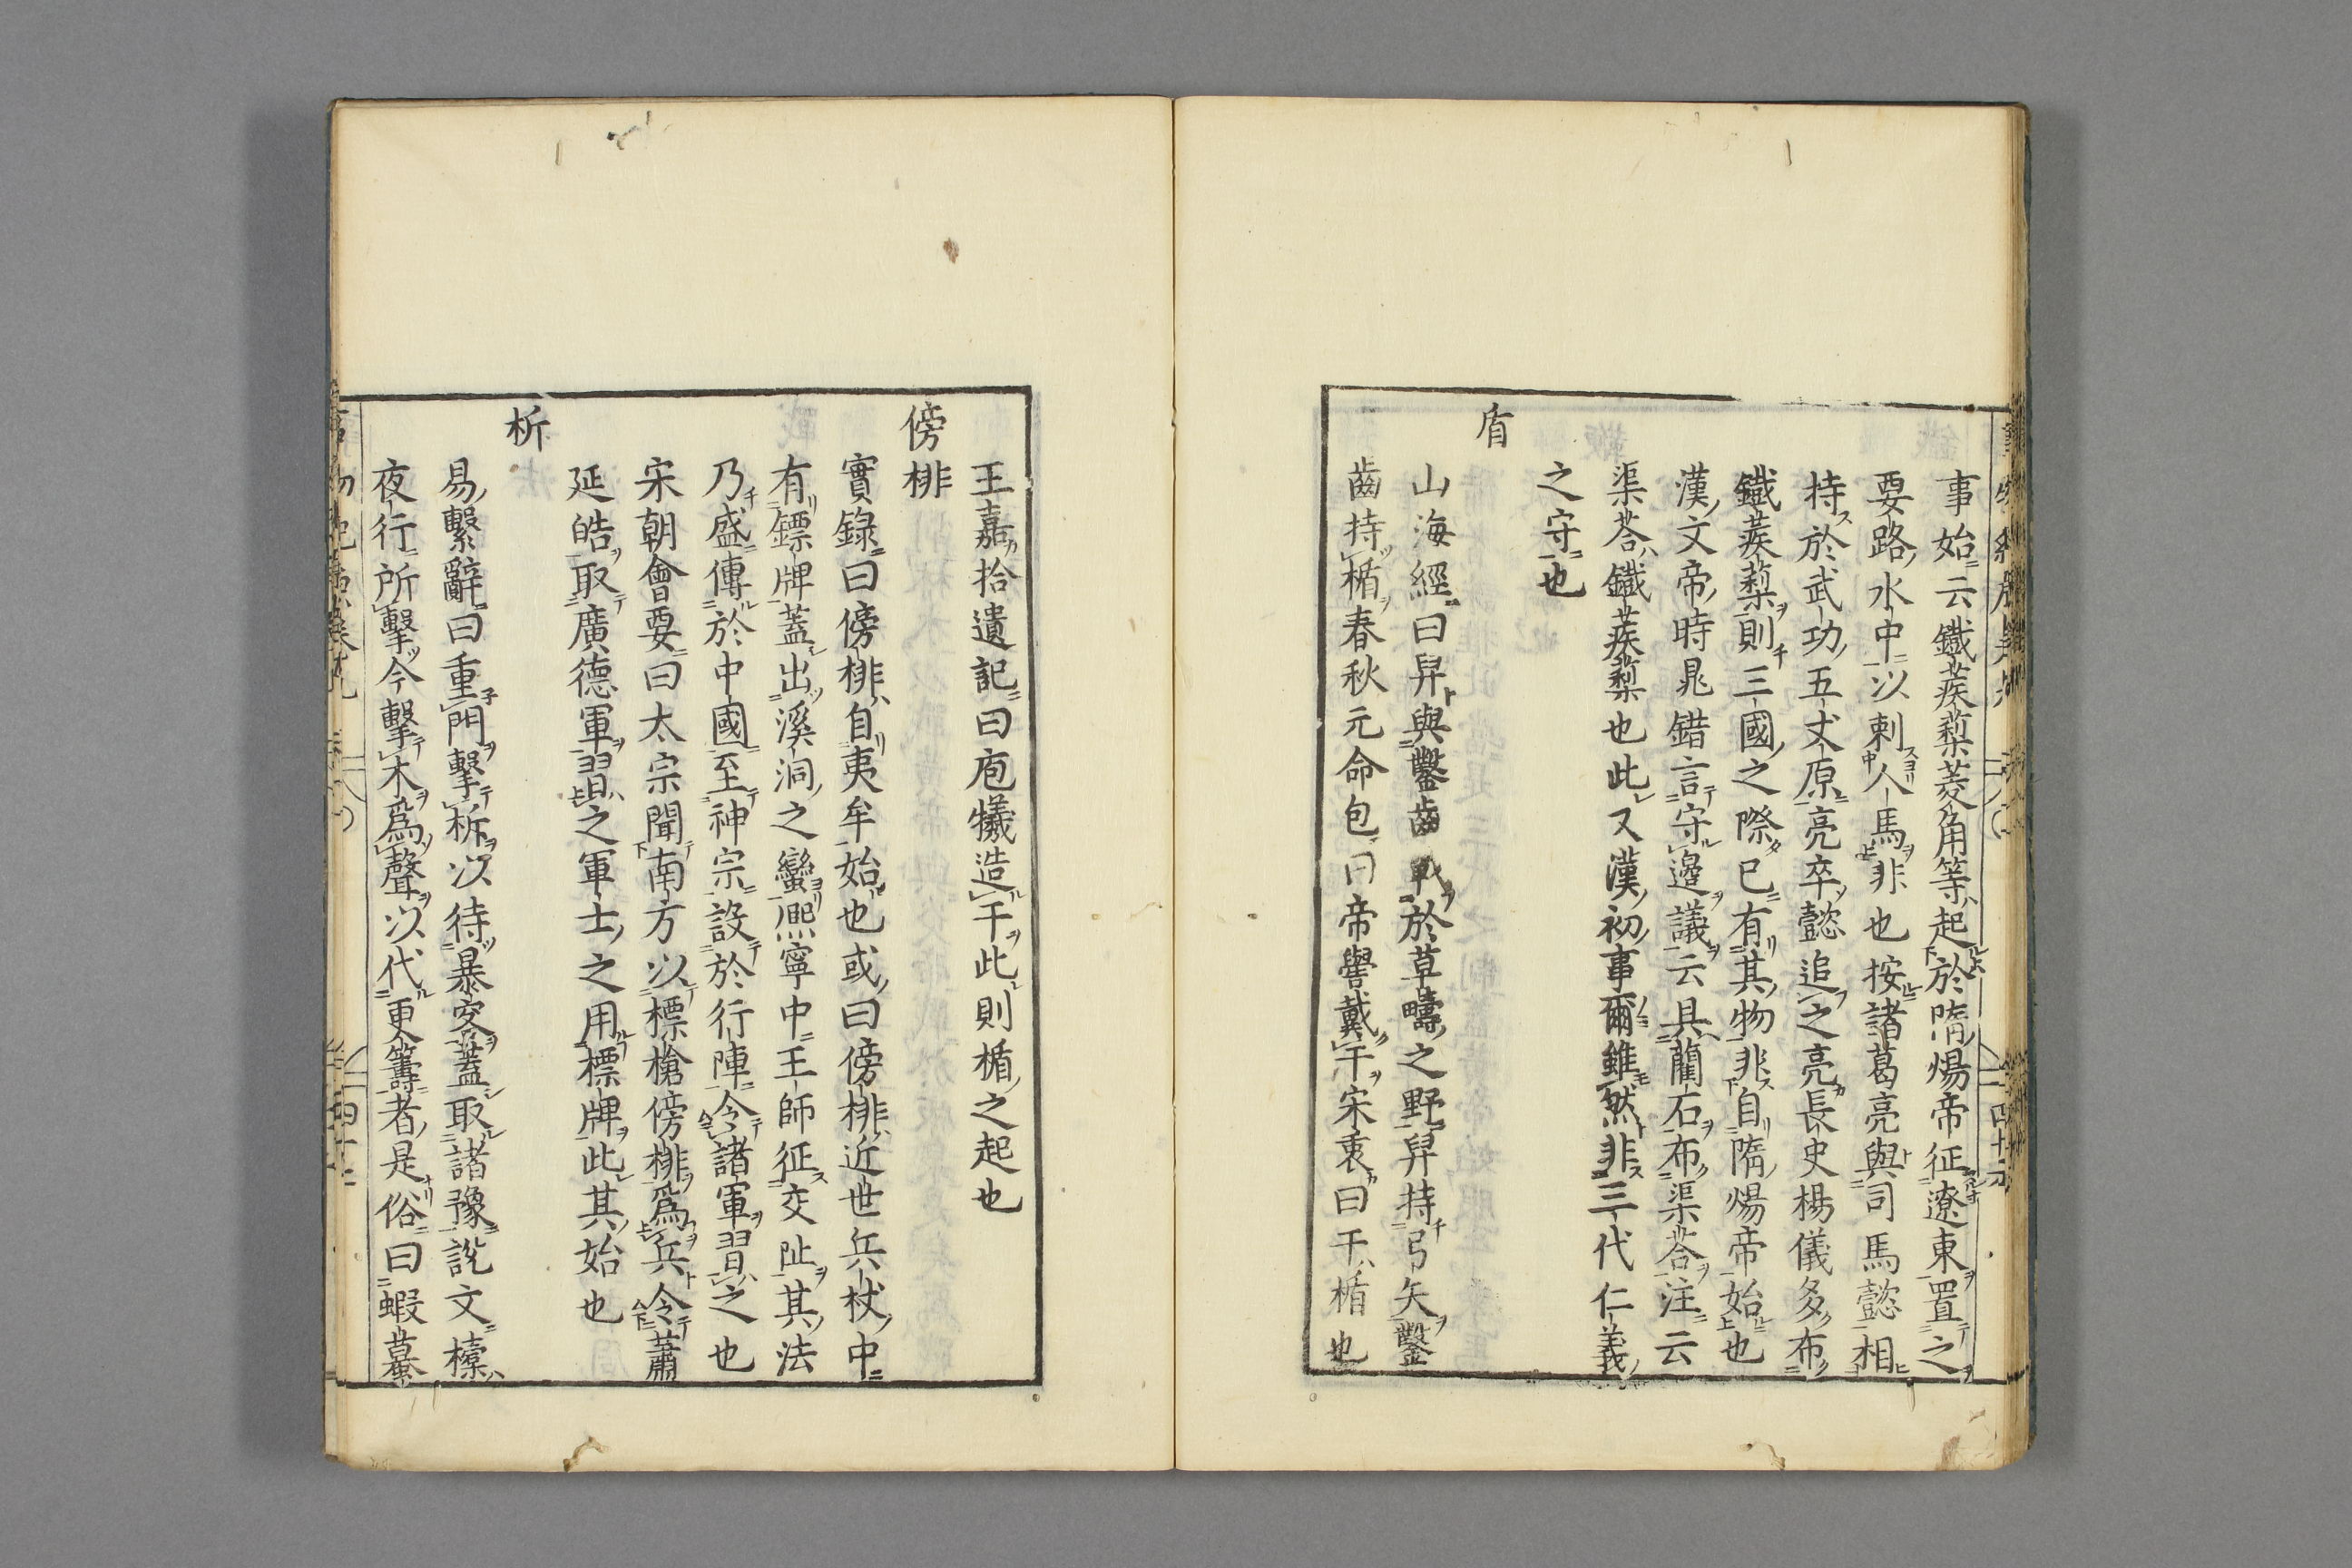 事始云鐵蒺蔾菱角等起於隋煬帝征遼東置之
要路水中以刺人馬非也按諸葛亮與司馬懿相
持於武功五丈原亮卒懿追之亮長史楊儀多布
鐵蒺蔾則三國之際已有其物非自隋煬帝始也
漢文帝時鼂錯言守邉議云具藺石布渠荅注云
渠荅鐵蒺蔾也此又漢初事爾雖然非三代仁義
之守也
盾
山海經曰羿與鑿齒戰於草疇之野羿持弓矢鑿
齒持楯春秋元命包曰帝嚳戴干宋衷曰干楯也
王嘉拾遺記曰庖犧造干此則楯之起也
傍排
實錄曰傍排自夷牟始也或曰傍排近世兵杖中
有鏢牌蓋出溪洞之蠻熈寧中王師征交阯其法
乃盛傳於中國至神宗設於行陣令諸軍習之也
宋朝會要曰太宗聞南方以標槍傍排爲兵令蕭
延皓取廣德軍習之軍士之用標牌此其始也
柝
易繫辭曰重門擊柝以待暴客蓋取諸豫說文㯓
夜行所擊今擊木爲聲以代更籌者是俗曰蝦蟇